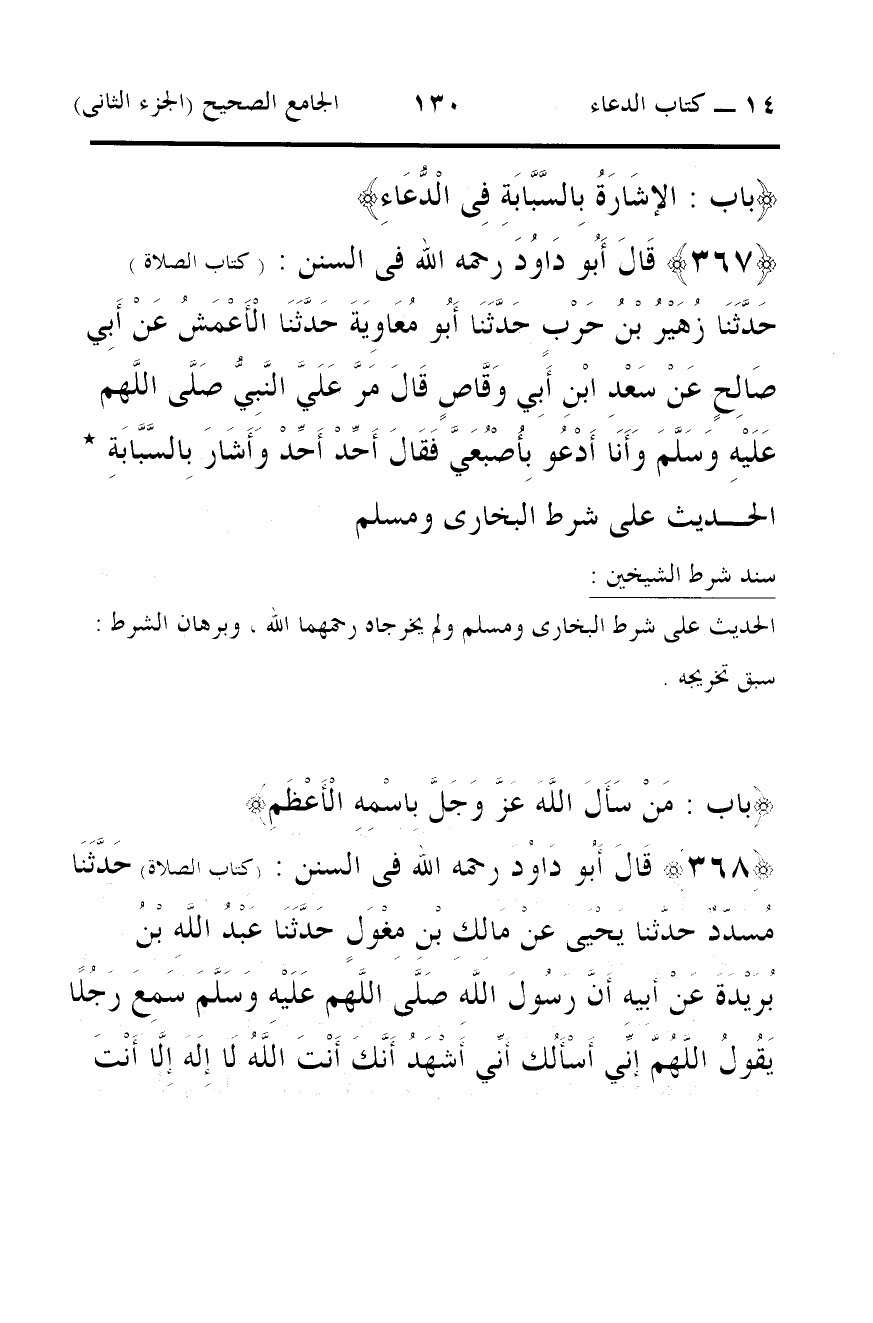 ١٤ ـ كتاب الدعاء ١٣٠ الجامع الصحيح (الجزء الثانى)
﴿باب : الإشَارَةُ بالسَّبَّابَةِ فِى الْدُّعَاءِ﴾
﴿٣٦٧﴾ قَالَ أَبُو دَاوُدَ رحمه الله فى السنن : ( كتاب الصلاة )
حَدَّثَنَا زُهَيْرُ بْنُ حَرْبٍ حَدَّثَنَا أَبُو مُعَاوِيَةَ حَدَّثَنَا الْأَعْمَشُ عَنْ أَبِي
صَالِحٍ عَنْ سَعْدِ ابْنِ أَبِي وَقَّاصٍ قَالَ مَرَّ عَلَيَّ النَّبِيُّ صَلَّى اللَّهم
عَلَيْهِ وَسَلَّمَ وَأَنَا أَدْعُو بِأُصْبُعَيَّ فَقَالَ أَحِّدْ أَحِّدْ وَأَشَارَ بِالسَّبَّابَةِ *
الحـــديث على شرط البخارى ومسلم
سند شرط الشيخين :
الحديث على شرط البخارى ومسلم ولم يخرجاه رحمهما الله ، وبرهان الشرط :
سبق تخريجه .
﴿باب : مَنْ سَأَلَ اللَّهَ عَزَّ وَجَلَّ بِاسْمِهِ الْأَعْظَمِ﴾
﴿٣٦٨﴾ قَالَ أَبُو دَاوُدَ رحمه الله فى السنن : (كتاب الصلاة) حَدَّثَنَا
مُسَدَّدٌ حَدَّثَنَا يَحْيَى عَنْ مَالِكِ بْنِ مِغْوَلٍ حَدَّثَنَا عَبْدُ اللَّهِ بْنُ
بُرَيْدَةَ عَنْ أَبِيهِ أَنَّ رَسُولَ اللَّهِ صَلَّى اللَّهم عَلَيْهِ وَسَلَّمَ سَمِعَ رَجُلًا
يَقُولُ اللَّهُمَّ إِنِّي أَسْأَلُكَ أَنِّي أَشْهَدُ أَنَّكَ أَنْتَ اللَّهُ لَا إِلَهَ إِلَّا أَنْتَ